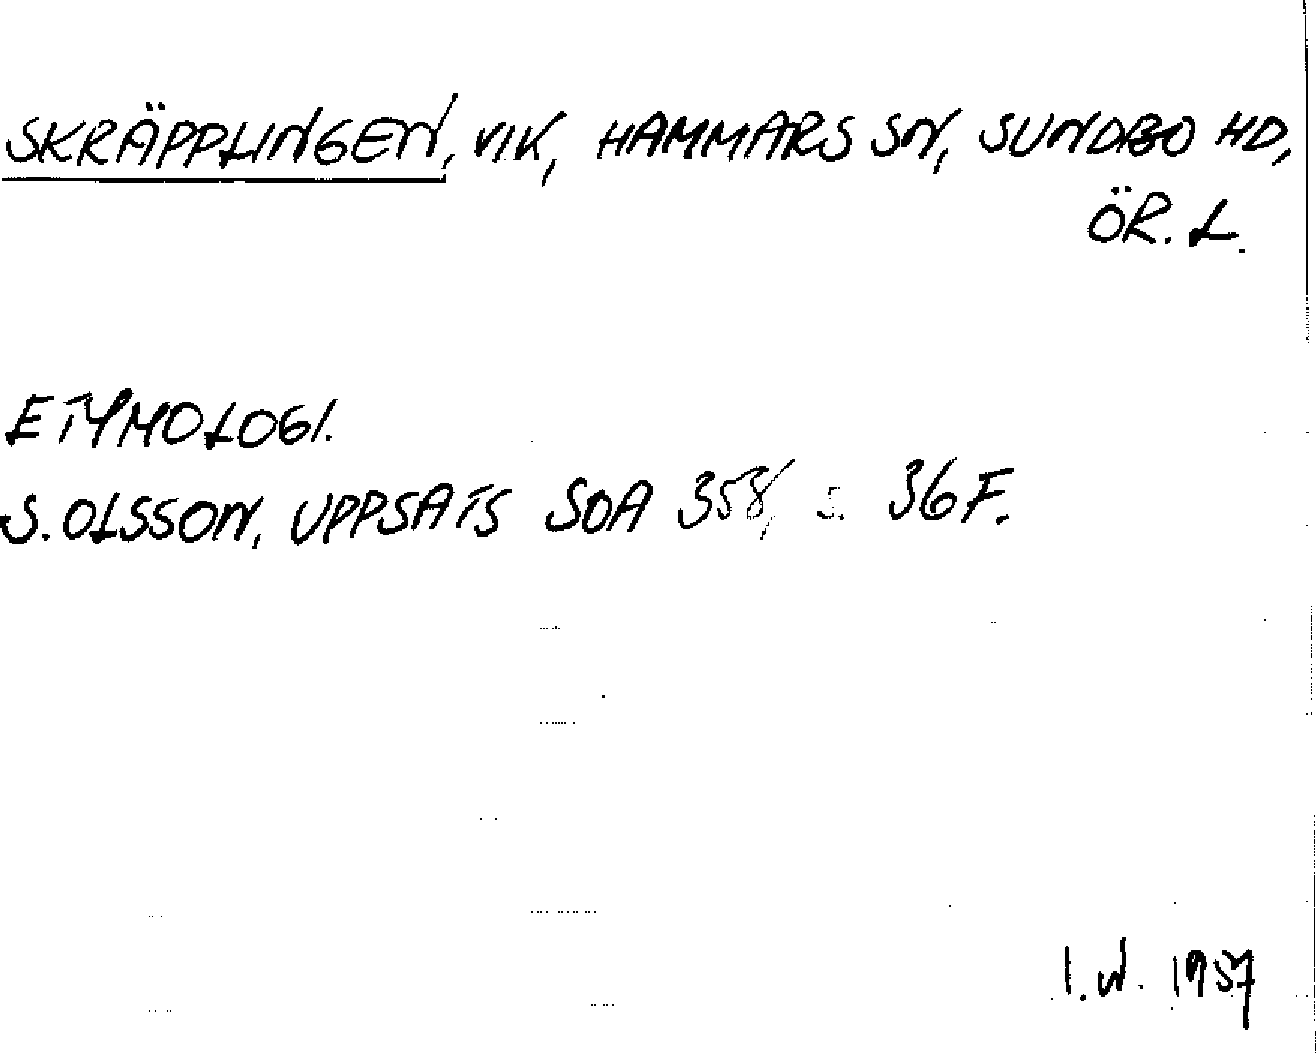 SKRÄPPLINGEN, VIK, HAMMARS SN, SUNDBO HD,
ÖR. L.
ETYMOLOGI.
S. OLSSON, UPPSATS SOA 358, S. 36 F.
I. W. 1957